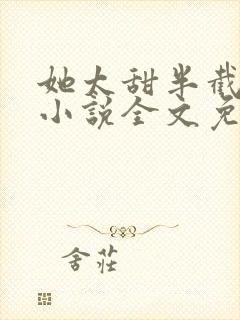 她太甜半截
小说全文免
舍莊